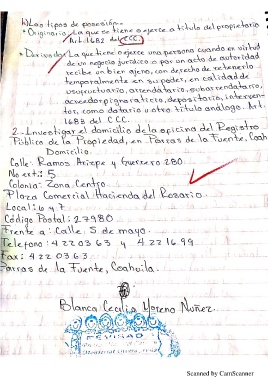 1) Los tipos de posesión.-
• Originaria: La que se tiene o ejerce a título del propietario
Art. 1682 del CCC.
• Derivada: La que tiene o ejerce una persona cuando en virtud
de un negocio jurídico o por un acto de autoridad
recibe un bien ajeno, con derecho de retenerlo
temporalmente en su poder, en calidad de
usufructuario, arrendatario, subarrendatario,
acreedor pignoraticio, depositario, interven-
tor, como datario u otro título análogo. Art.
1683 del C.C.C.
2.- Investigar el domicilio de la oficina del Registro
Público de la Propiedad, en Parras de la Fuente, Coah
Domicilio.
Calle: Ramos Arizpe y Guerrero 280
No ext: 5
Colonia: Zona Centro
Plaza Comercial Hacienda del Rosario.
Local: 6 y 7
Código Postal: 27980
Frente a: Calle 5 de mayo.
Telefono: 4220363 y 4221699
Fax: 4220363
Parras de la Fuente, Coahuila.
Blanca Cecilia Moreno Nuñez.
REVISADO
Scanned by CamScanner